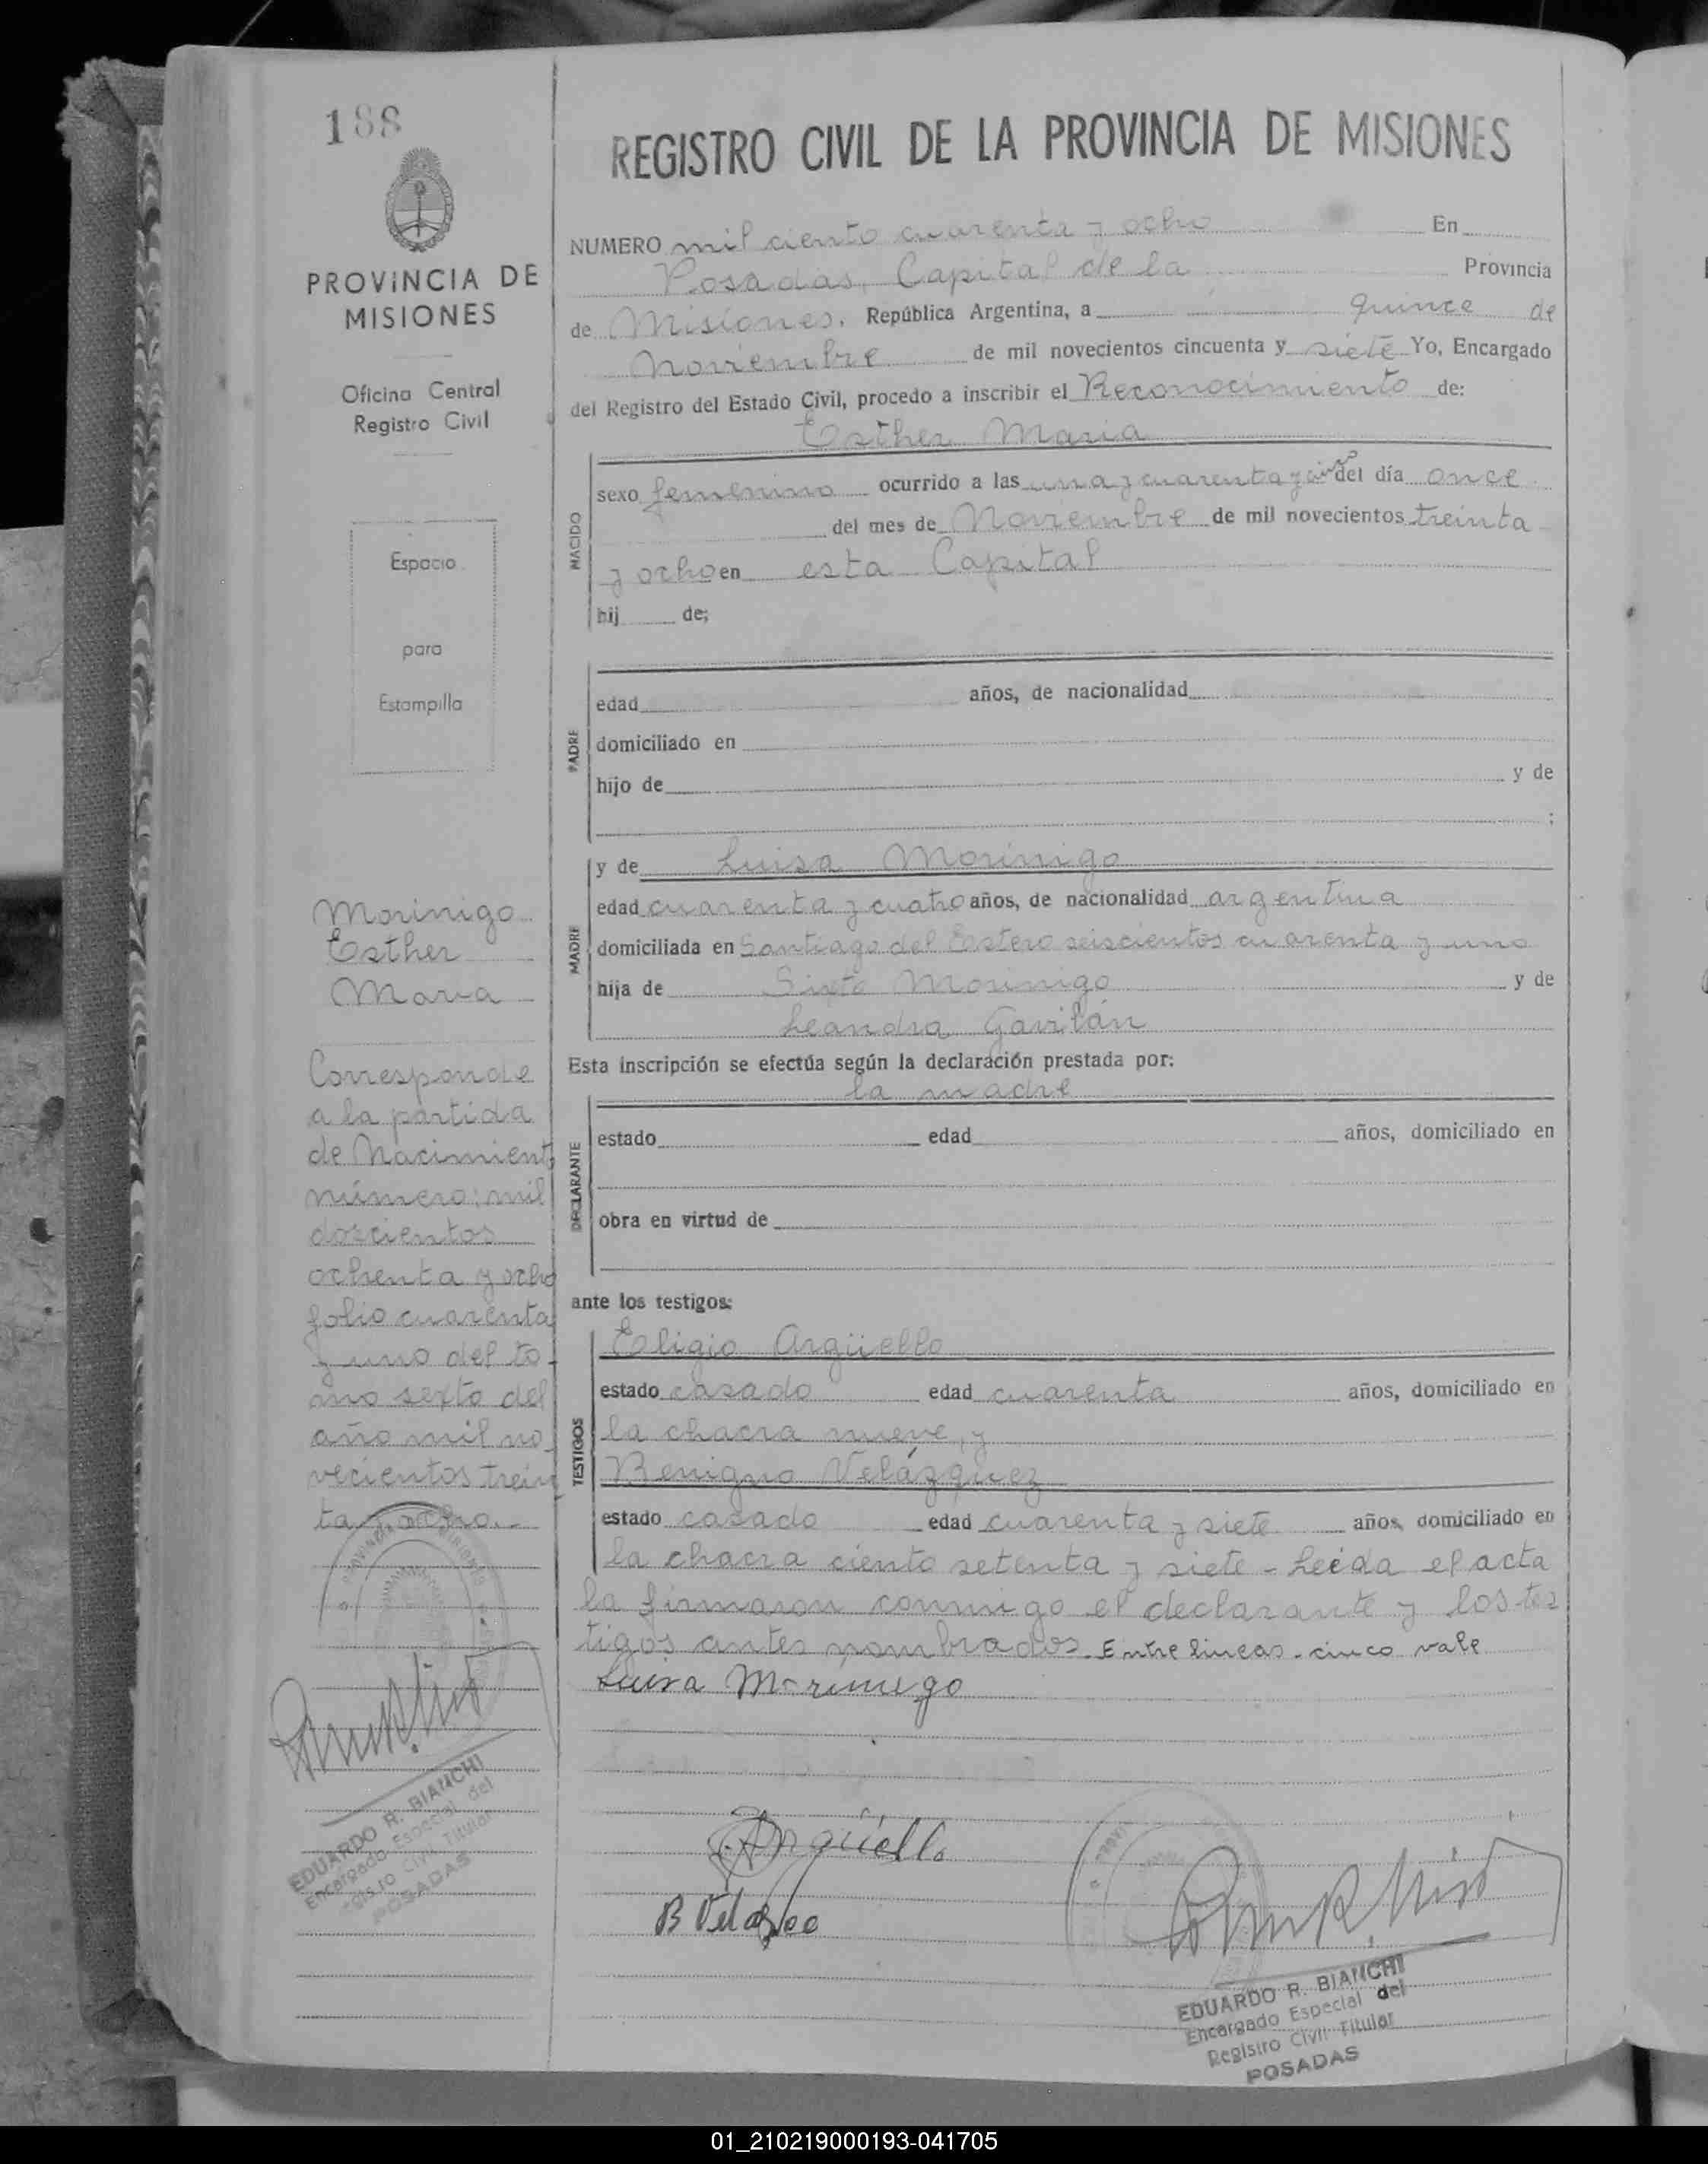 188
PROVINCIA DE
MISIONES
Oficina Central
Registro Civil
Espacio
para
Estampilla
Morinigo
Esther
Maria
Corresponde
a la partida
de Nacimiento
número: mil
doscientos
ochenta y ocho
folio cuarenta
y uno del to-
mo sexto del
año mil no-
vecientos trein
ta y ocho.-
EDUARDO R. BIANCHI
Encargado Especial del
Registro Civil Titular
POSADAS
REGISTRO CIVIL DE LA PROVINCIA DE MISIONES
NUMERO mil ciento cuarenta y ocho En
Posadas, Capital de la Provincia
de Misiones, República Argentina, a quince de
Noviembre de mil novecientos cincuenta y siete Yo, Encargado
del Registro del Estado Civil, procedo a inscribir el Reconocimiento de:
Esther Maria
NACIDO
sexo femenino ocurrido a las una y cuarenta y cinco del día once
del mes de Noviembre de mil novecientos treinta
y ocho en esta Capital
hij de;
PADRE
edad años, de nacionalidad
domiciliado en
hijo de y de
;
MADRE
y de Luisa Morinigo
edad cuarenta y cuatro años, de nacionalidad argentina
domiciliada en Santiago del Estero seiscientos cuarenta y uno
hija de Sixto Morinigo y de
Leandra Gavilán
Esta inscripción se efectúa según la declaración prestada por:
la madre
DECLARANTE
estado edad años, domiciliado en
obra en virtud de
ante los testigos:
TESTIGOS
Eligio Argüello
estado casado edad cuarenta años, domiciliado en
la chacra nueve, y
Benigno Velázquez
estado casado edad cuarenta y siete años, domiciliado en
la chacra ciento setenta y siete - Leída el acta
la firmaron conmigo el declarante y los tes
tigos antes nombrados. Entre lineas - cinco vale
Luisa Morinigo
Argüello
B Velazque
EDUARDO R. BIANCHI
Encargado Especial del
Registro Civil Titular
POSADAS
01_210219000193-041705